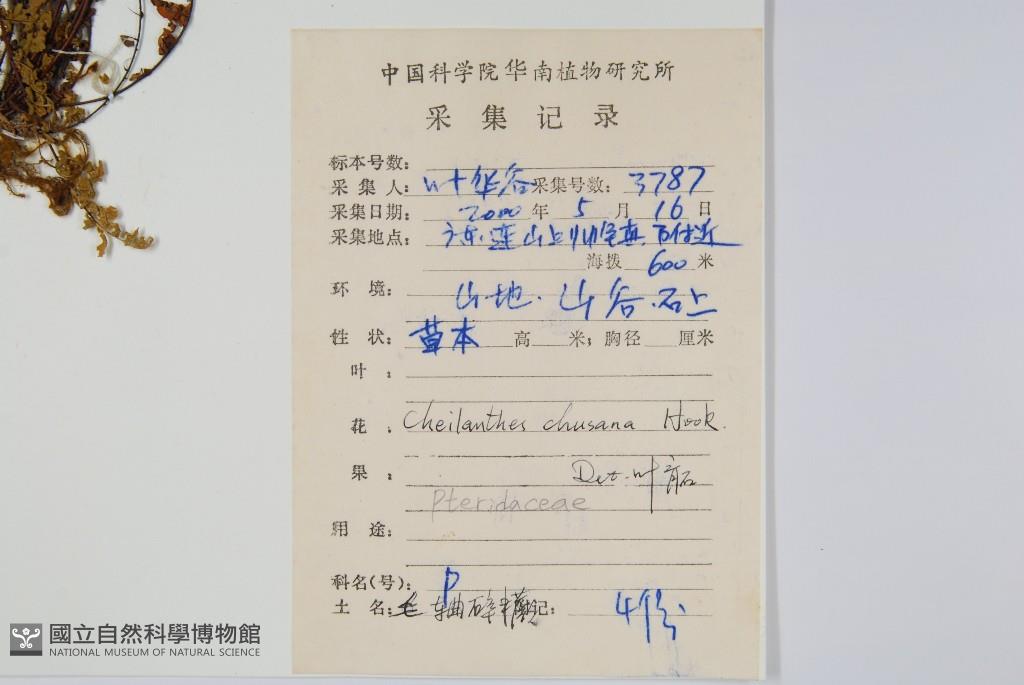 中国科学院华南植物研究所
采集记录
标本号数：
采集人：叶华谷 采集号数：3787
采集日期：2000年5月16日
采集地点：广东.连山上 附近
海拨 600 米
环境：山地.山谷.石上
性状：草本 高 米；胸径 厘米
叶：
花：Cheilanthes chusana Hook.
果：
Det. 叶
Pteridaceae
用途：
科名(号)：P
土名：毛轴碎米蕨 记：4份
國立自然科學博物館
NATIONAL MUSEUM OF NATURAL SCIENCE